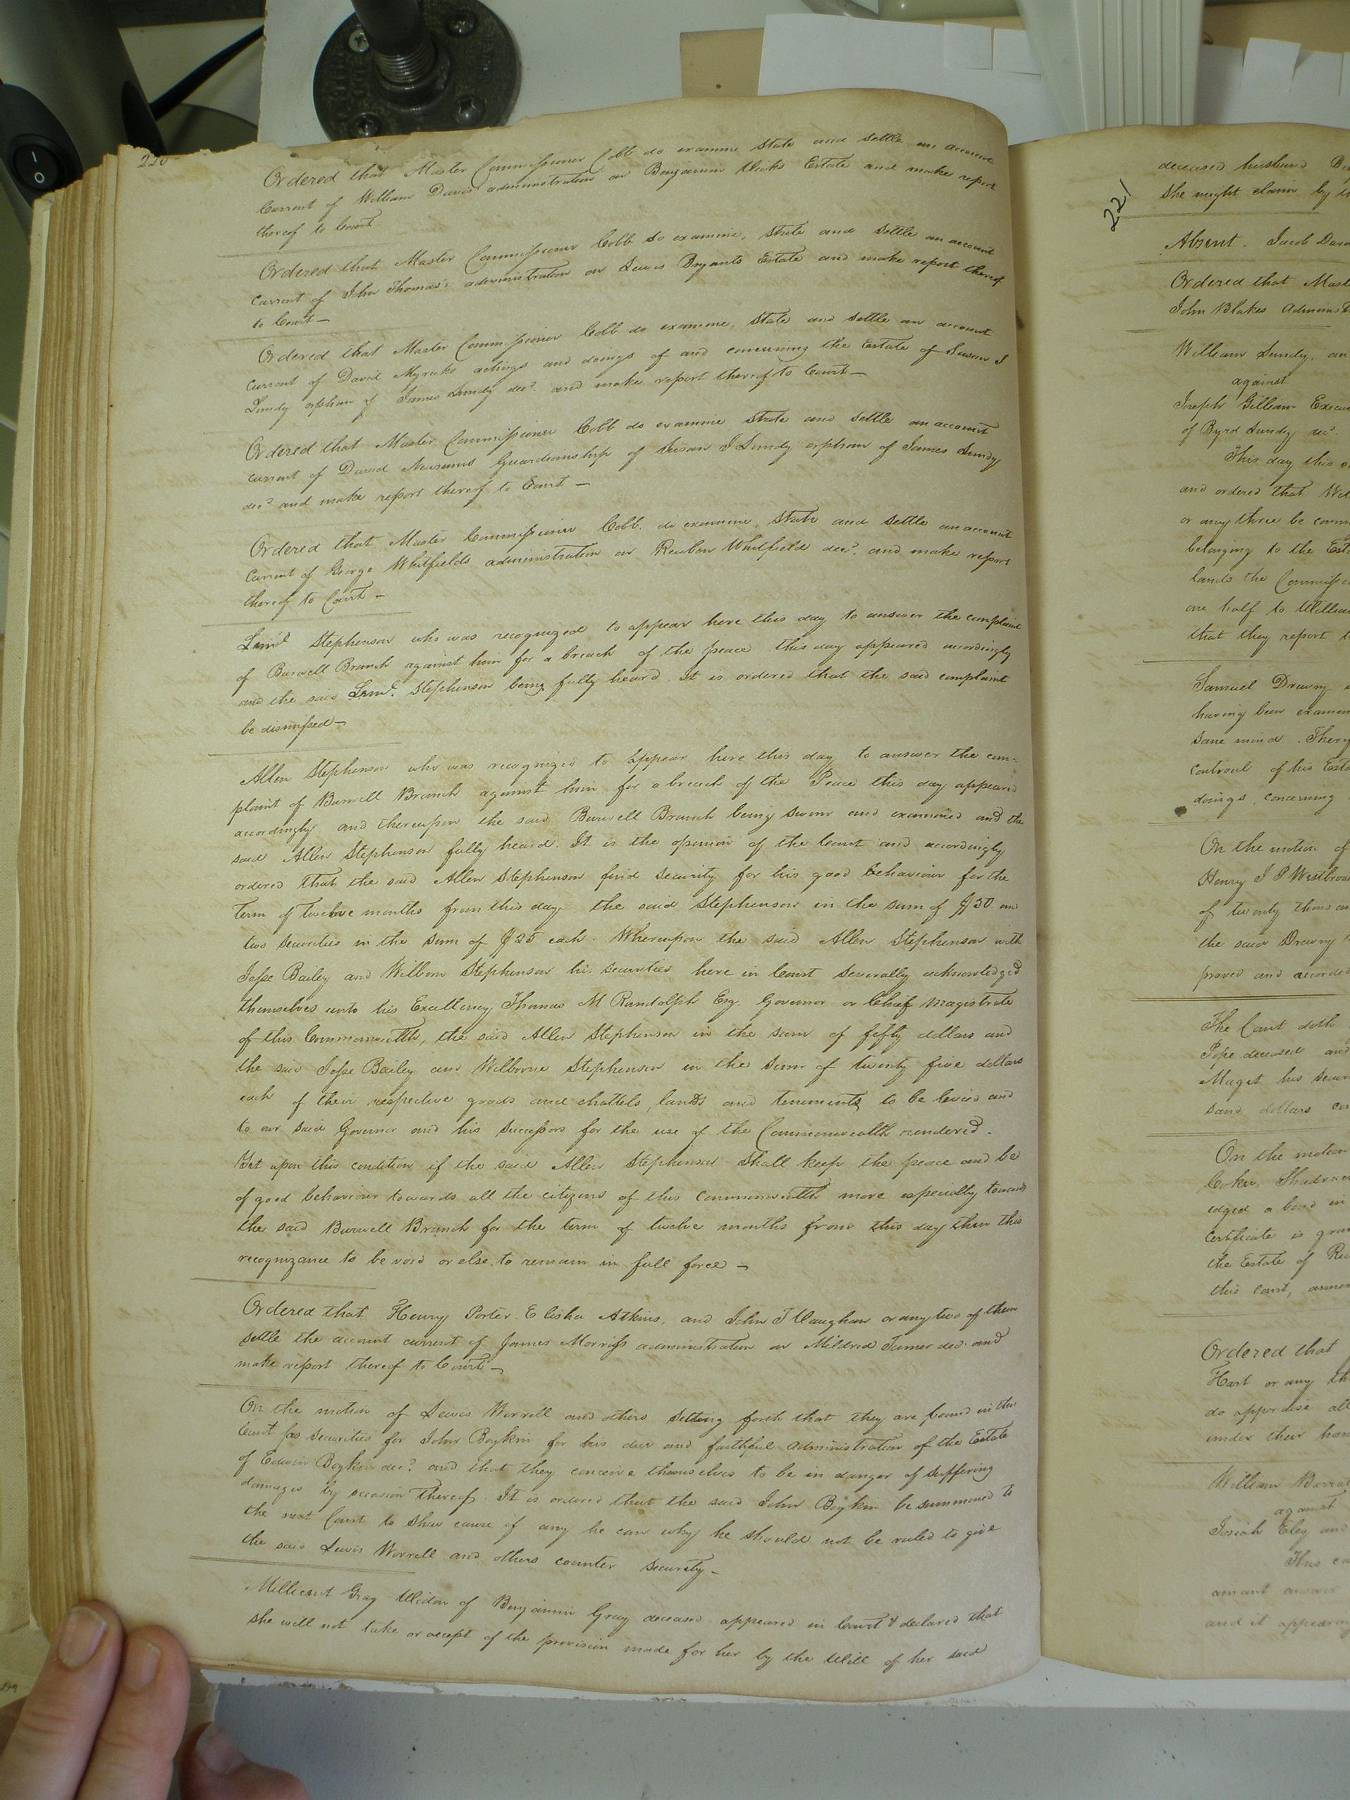 220
Ordered that Master Commissioner Cobb do examine state and settle an account
Current of William Davis administration on Benjamin Estate and make report
thereof to Court
Ordered that Master Commissioner Cobb do examine, state and settle an account
current of John Thomas's administration on Lewis Bryants Estate and make report thereof
to Court—
Ordered that Master Commissioner Cobb do examine, state and settle an account
current of David Myricks actings and doings of and concerning the Estate of Susan J
Lundy orphan of James Lundy decd. and make report thereof to Court—
Ordered that Master Commissioner Cobb do examine state and settle an account
current of David Guardianship of Susan J Lundy orphan of James Lundy
decd and make report thereof to Court—
Ordered that Master Commissioner Cobb. do examine, state and settle an account
Current of George Whitfields administration on Reuben Whitfield decd. and make report
thereof to Court—
Stephenson who was recognized to appear here this day to answer the complaint
of Burwell Branch against him for a breach of the peace this day appeared accordingly
and the said Stephenson being fully heard. It is ordered that the said complaint
be dismissed—
Allen Stephenson who was recognized to appear here this day to answer the com-
plaint of Burwell Branch against him for a breach of the Peace this day appeared
accordingly and thereupon the said Burwell Branch being sworn and examined and the
said Allen Stephenson fully heard. It is the opinion of the Court and accordingly
ordered that the said Allen Stephenson find security for his good behaviour for the
term of twelve months from this day the said Stephenson in the sum of $50 and
two securities in the sum of $25 each. Whereupon the said Allen Stephenson with
Jesse Bailey and Wilborn Stephenson his securities here in Court severally acknowledged
themselves unto his Excellency Thomas M Randolph Esq. Governor or Chief magistrate
of this Commonwealth, the said Allen Stephenson in the sum of fifty dollars and
the said Jesse Bailey and Wilborne Stephenson in the sum of twenty five dollars
each of their respective goods and chattels, lands and tenements to be levied and
to our said Governor and his successors for the use of the Commonwealth rendered.
Yet upon this condition if the said Allen Stephenson shall keep the peace and be
of good behaviour towards all the citizens of this commonwealth more especially toward
the said Burwell Branch for the term of twelve months from this day then this
recognizance to be void or else to remain in full force—
Ordered that Henry Porter, Elisha Atkins, and John T Vaughan or any two of them
settle the account current of James Morriss administration on Mildred Turner decd and
make report thereof to Court—
On the motion of Lewis Worrell and others setting forth that they are bound in this
Court as securities for John Boykin for his due and faithful administration of the Estate
of Edwin Boykin decd. and that they conceive themselves to be in danger of suffering
damages by occasion thereof. It is ordered that the said John Boykin be summoned to
the next Court to shew cause if any he can why he should not be ruled to give
the said Lewis Worrell and others counter security—
Millicent Gray Widow of Benjamin Gray deceased appeared in Court & declared that
she will not take or accept of the provision made for her by the Will of her said
221
deceased husband
She might claim by
Absent. Jacob
Ordered that
John Blakes
William Lundy, an
against
Joseph Gilliam
of Byrd Lundy decd.
This day this
and ordered that
or any three be
belonging to the
lands the
one half to
that they report
Samuel Drewry
having been
sane mind.
controul of his
doings, concerning
On the motion of
Henry J P
of twenty
the said Drewry
proved and
The Court doth
Pope deceased and
his
sand dollars
On the motion
edged a bond in
Certificate is
the Estate of
this court,
Ordered that
Hart or any
do appraise all
under their
William
against
Josiah Eley and
This
answer
and it appearing